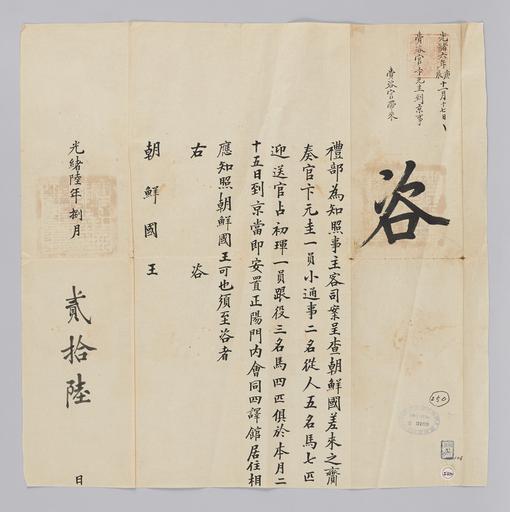 光緒六年庚辰十一月十七日
賫咨官卞元圭到京事
賫咨官帶來
咨
禮部為知照事主客司案呈查朝鮮國差來之齎
奏官卞元圭一員小通事二名從人五名馬七匹
迎送官占初琿一員跟役三名馬四匹俱於本月二
十五日到京當即安置正陽門内會同四譯館居住相
應知照朝鮮國王可也須至咨者
右咨
朝鮮國王
光緒陸年捌月
貳拾陸
日
250